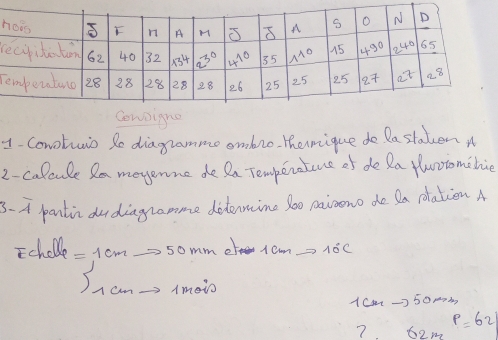 Mois J F M A M J J A S O N D
Précipitation 62 40 32 134 230 410 35 110 15 490 240 65
Température 28 28 28 28 28 26 25 25 25 27 27 28
Consigne
1 - Construis le diagramme ombro-thermique de la station A
2 - Calcule la moyenne de la Température et de la fluviométrie
3 - À partir du diagramme détermine les saisons de la station A
Echelle = 1cm → 50mm et 1cm → 10°C
1cm → 1mois
1cm → 50mm
? 62m P = 62